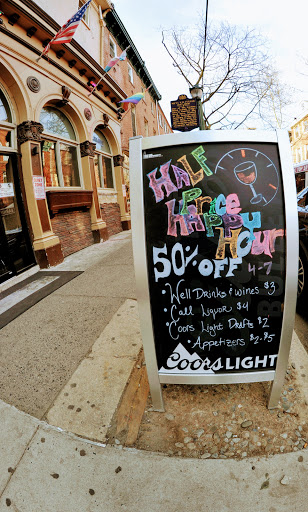 Half
Pence
Happy
Hour
50% OFF 4-7
• Well Drinks & wines $3
• Call Liquor $4
• Coors Light Drafts $2
• Appetizers $2-$5
Coors LIGHT